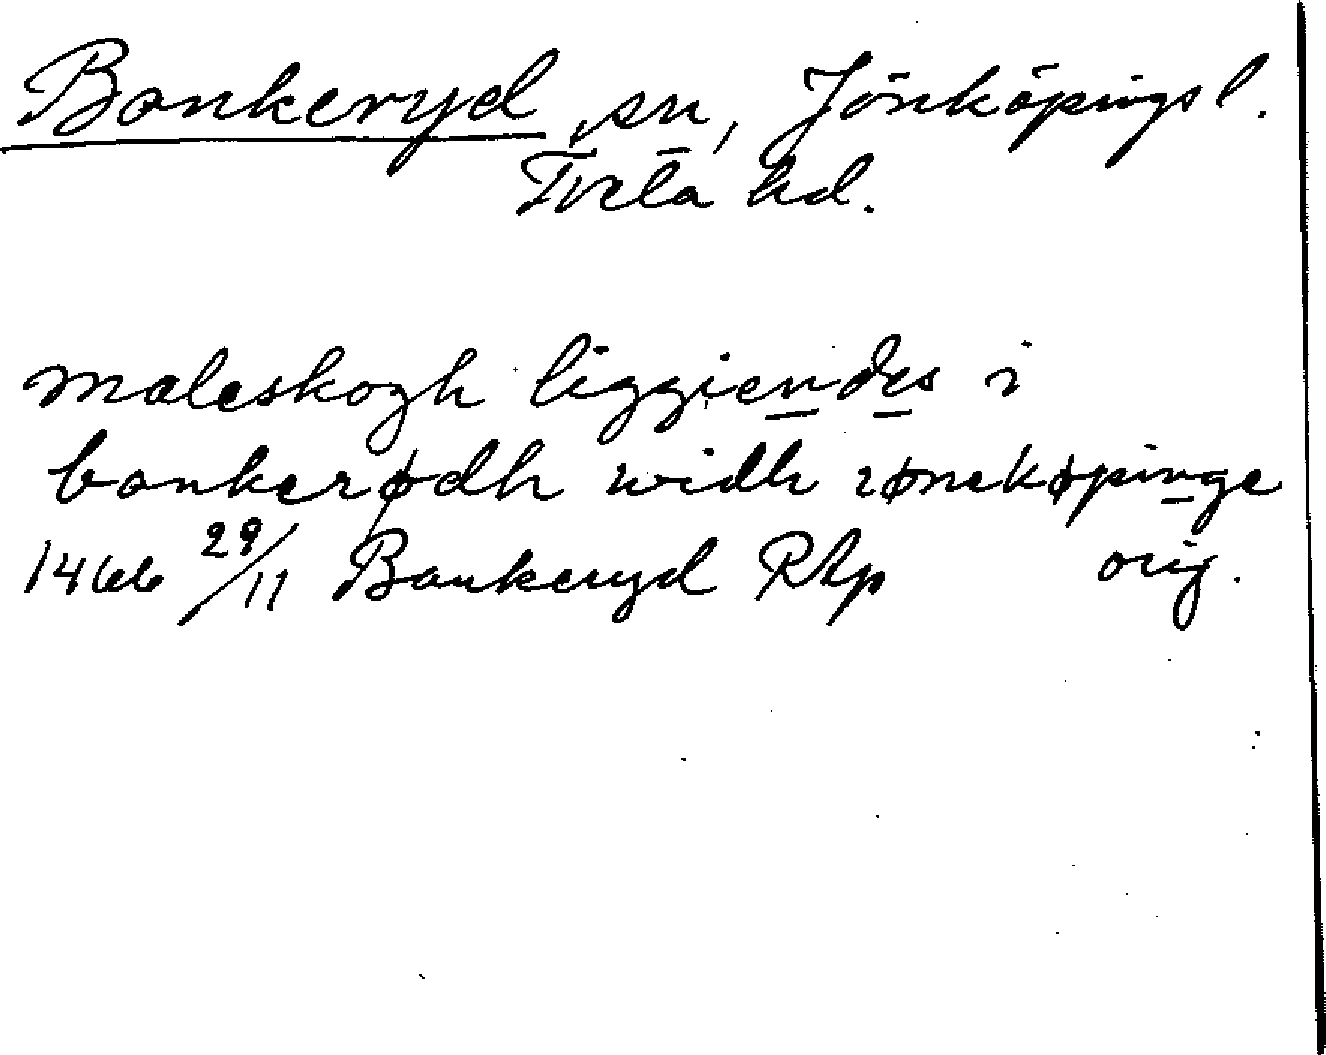 Bankeryd sn, Jönköpings l.
Tveta hd.
maleskogh liggiendes i
bankerødh widh iønekøpinge
1466 29/11 Bankeryd RAp orig.